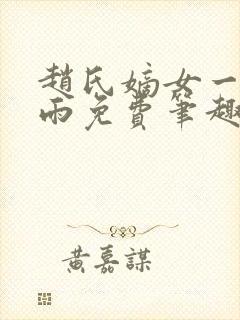 趙氏嫡女一
雨免費筆趣
黃嘉謀